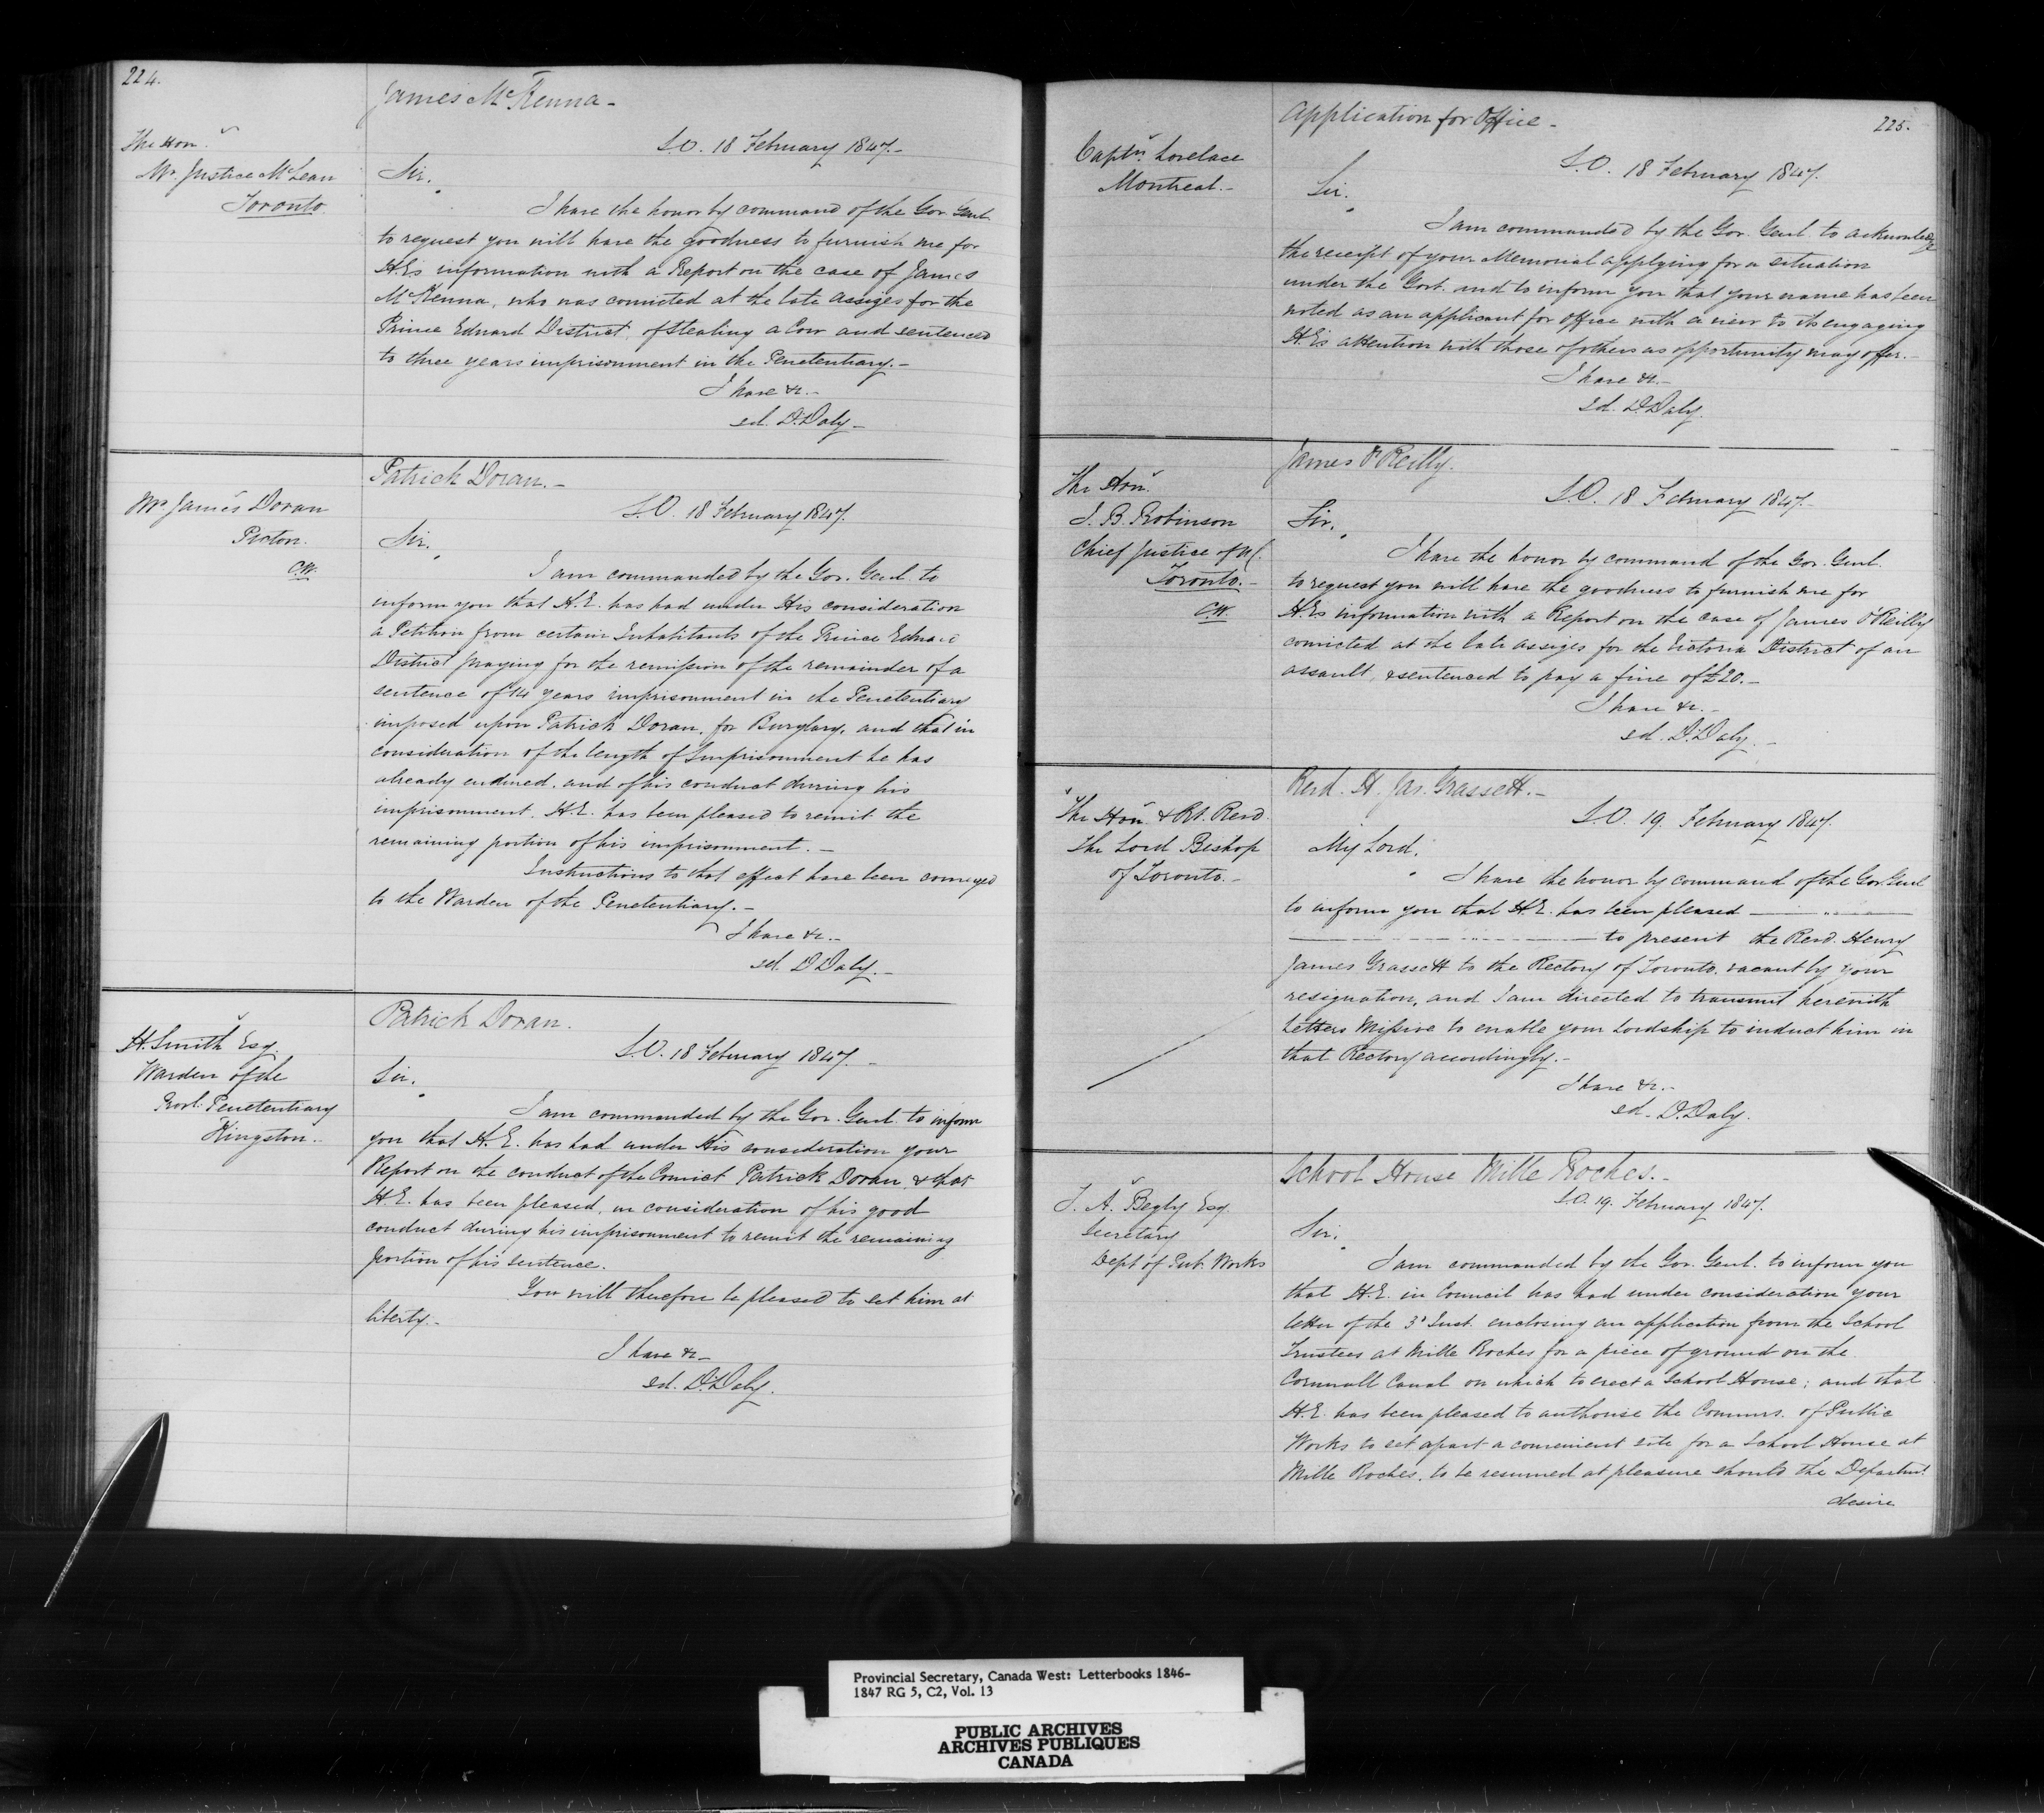 224.
James McKenna -
The Hon.
Mr. Justice McLean
Toronto
S.O. 18 February 1847.-
Sir.
I have the honor by command of the Gov. Genl.
to request you will have the goodness to furnish me for
H.E's information with a Report on the case of James
McKenna, who was convicted at the late assizes for the
Prince Edward District, of stealing a Cow and sentenced
to three years imprisonment in the Penetentiary.-
I have &c.-
sd. D. Daly -
Patrick Doran.-
Mr James Doran
Picton.
C.W.
S.O. 18 February 1847.
Sir.
I am commanded by the Gov. Genl. to
inform you that H.E. has had under His consideration
a Petition from certain Inhabitants of the Prince Edward
District praying for the remission of the remainder of a
sentence of 14 years imprisonment in the Penetentiary
imposed upon Patrick Doran, for Burglary, and that in
consideration of the length of Imprisonment he has
already endured, and of his conduct during his
imprisonment. H.E. has been pleased to remit the
remaining portion of his imprisonment. -
Instructions to that effect have been conveyed
to the Warden of the Penetentiary.-
I have &c.-
sd. D Daly.-
Patrick Doran.
H. Smith Esq.
Warden of the
Provl. Penetentiary
Kingston..
S.O. 18 February 1847. -
Sir.
I am commanded by the Gov. Genl. to inform
you that H.E. has had under His consideration your
Report on the conduct of the Convict Patrick Doran, & that
H.E. has been pleased, in consideration of his good
conduct during his imprisonment to remit the remaining
portion of his sentence.
You will therefore be pleased to set him at
liberty.-
I have &c-
sd. D. Daly.
225.
Application for Office -
Captn. Lovelace
Montreal.-
S.O. 18 February 1847.
Sir.
I am commanded by the Gov. Genl. to acknowledge
the receipt of your Memorial applying for a situation
under the Govt. and to inform you that your name has been
noted as an applicant for office with a view to its engaging
H.E's attention with those of others as opportunity may offer.-
I have &c.-
sd. D. Daly.
James O'Reilly.
The Hon.
J. B. Robinson
Chief Justice of U C.
Toronto.-
C.W.
S.O. 18 February 1847.-
Sir.
I have the honor by command of the Gov. Genl.
to request you will have the goodness to furnish me for
H.E's information with a Report on the case of James O'Reilly
convicted at the late assizes for the Victoria District of an
assault, & sentenced to pay a fine of £20.-
I have &c.-
sd. D. Daly. -
Revd. H. Jas. Grassett.-
The Hon. & Rt. Revd.
The Lord Bishop
of Toronto.-
S.O. 19. February 1847.
My Lord.
I have the honor by command of the Gov. Genl
to inform you that H.E. has been pleased
to present the Revd. Henry
James Grassett to the Rectory of Toronto, vacant by your
resignation, and I am directed to transmit herewith
Letters Missive to enable your Lordship to induct him in
that Rectory accordingly.-
I have &c.-
sd. D. Daly.
School House Mille Roches.-
T. A. Begly Esq.
Secretary
Dept. of Pub. Works
S.O. 19. February 1847.
Sir.
I am commanded by the Gov. Genl. to inform you
that H.E. in Council has had under consideration your
letter of the 3d Inst. enclosing an application from the School
Trustees at Mille Roches for a piece of ground on the
Cornwall Canal on which to erect a School House; and that
H.E. has been pleased to authorise the Commrs. of Public
Works to set apart a convenient site for a School House at
Mille Roches, to be resumed at pleasure should the Departmt.
desire
Provincial Secretary, Canada West: Letterbooks 1846-
1847 RG 5, C2, Vol. 13
PUBLIC ARCHIVES
ARCHIVES PUBLIQUES
CANADA